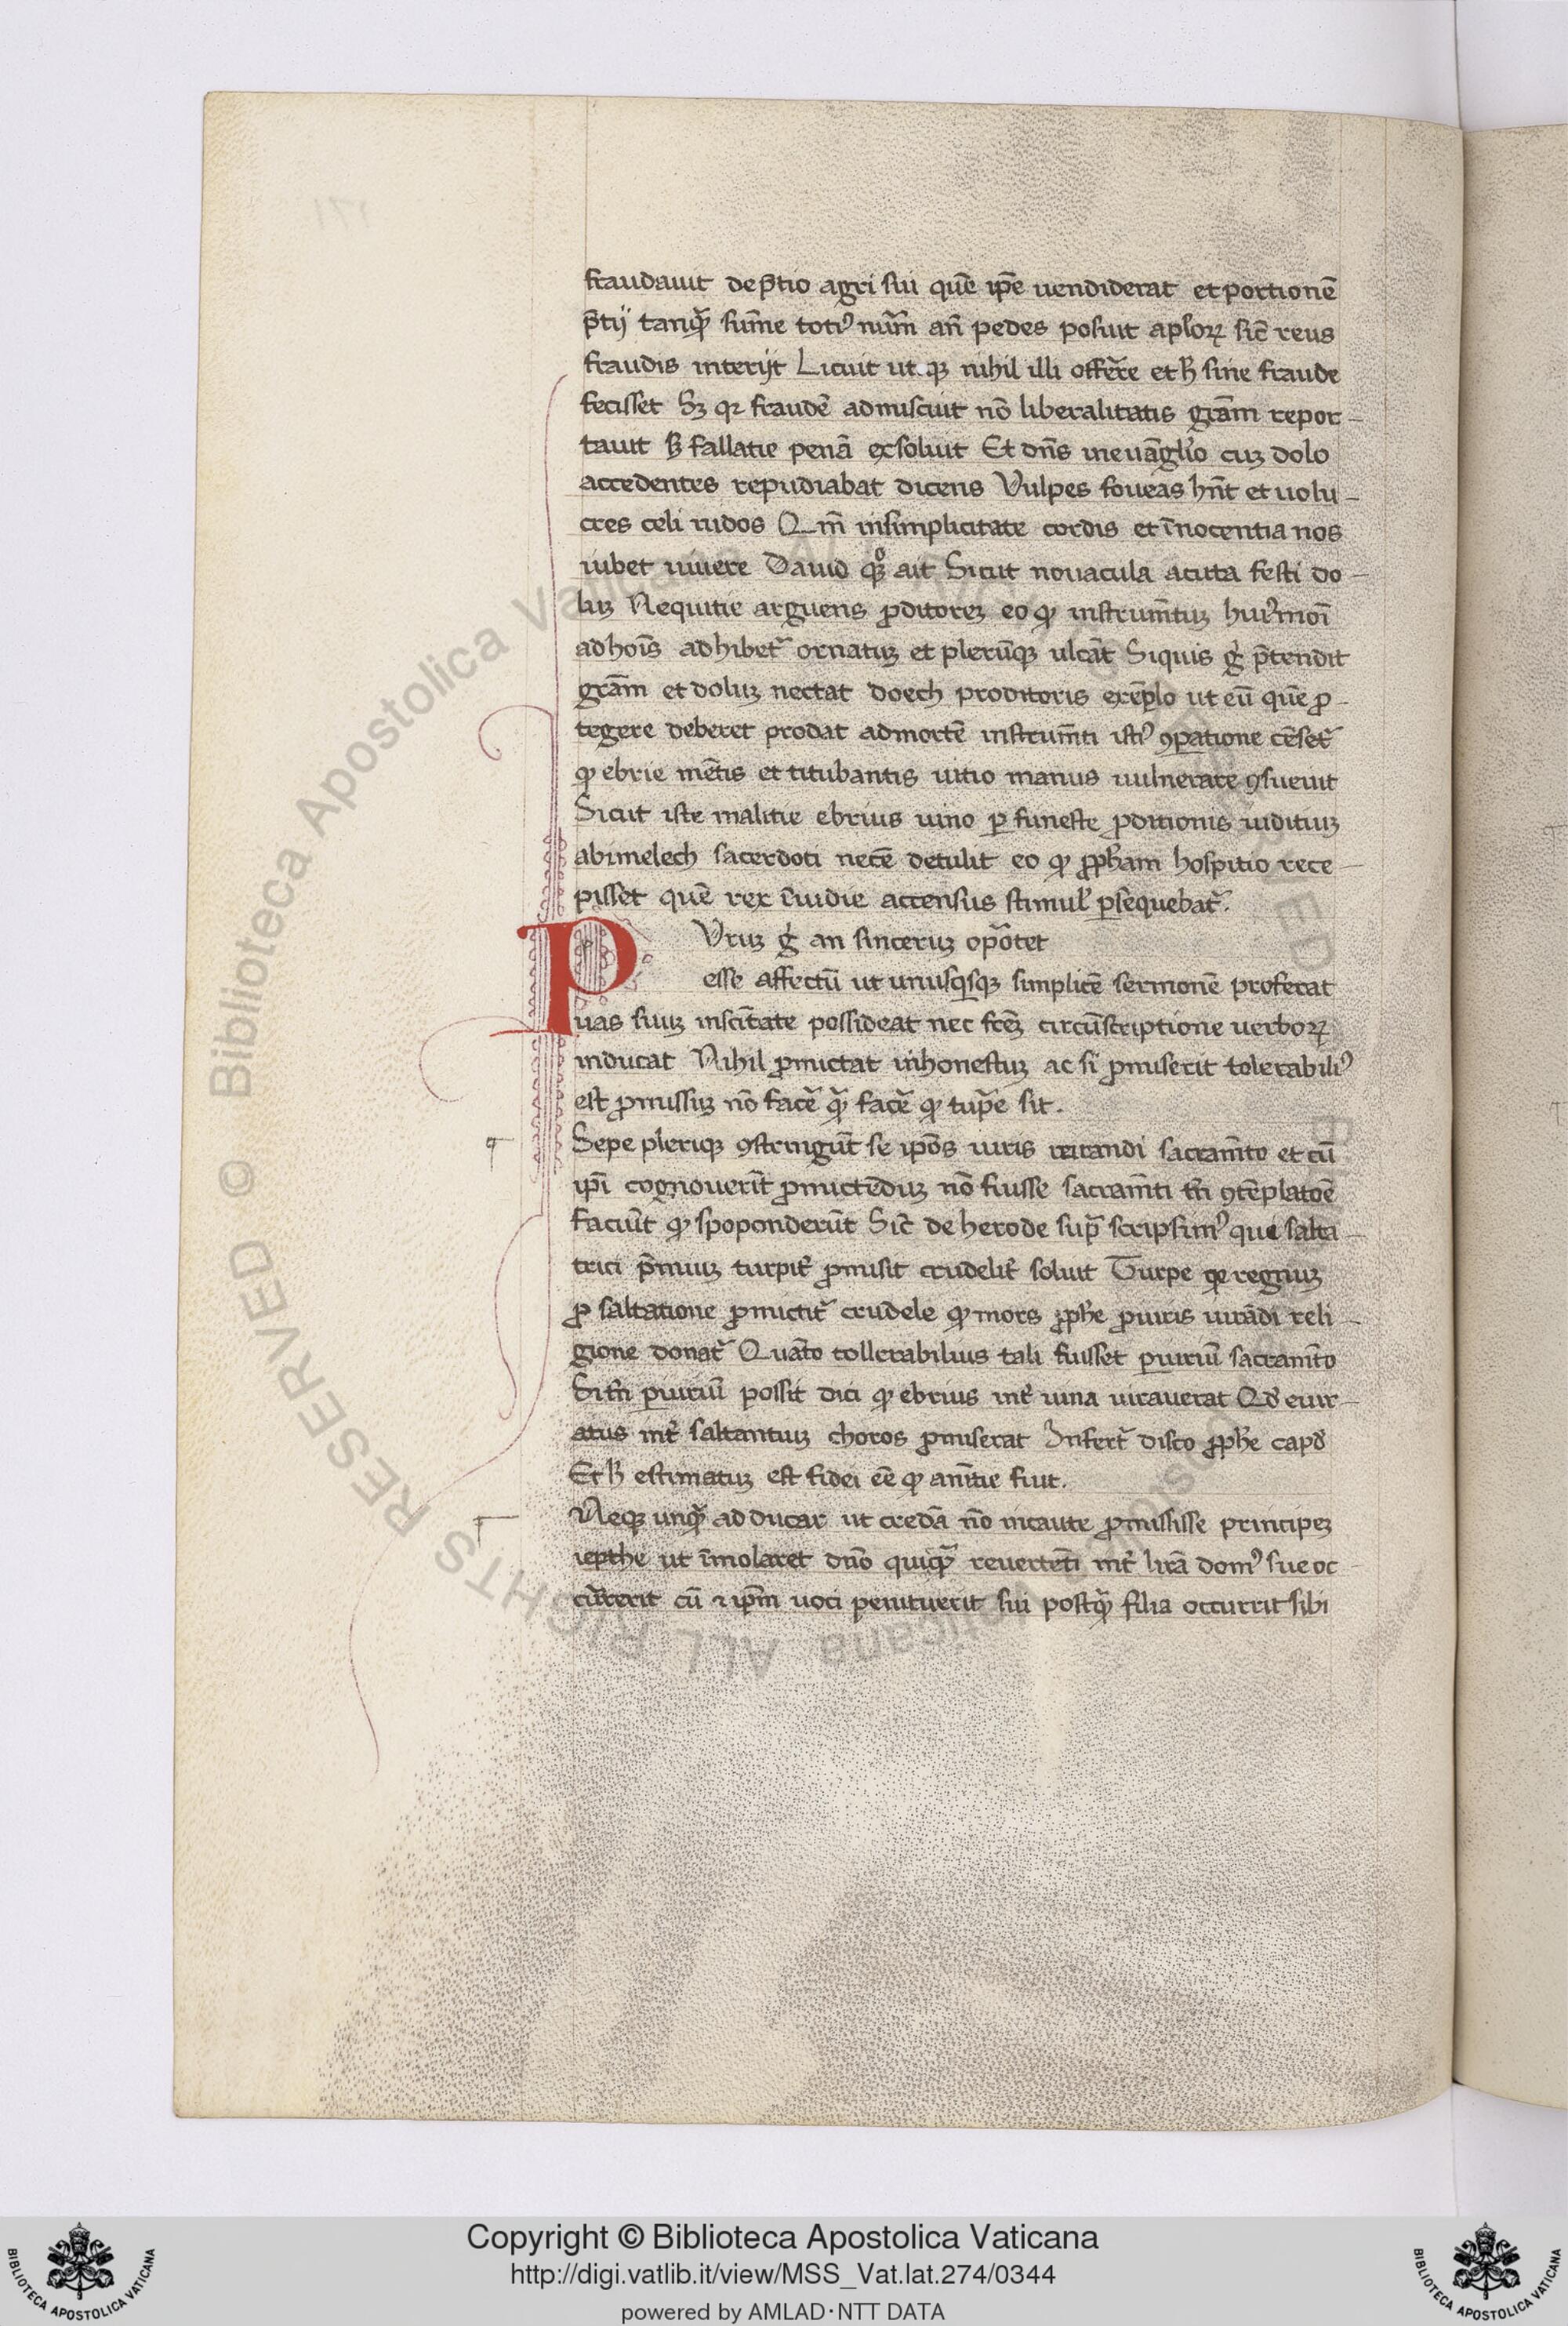 fraudauit de p̄tio agri sui quē ip̄e uendiderat et portionē
p̄tij tanq̄ȝ sum̄e toti⁹ nūm an̄ pedes posuit aplorꝝ sic̄ reus
fraudis interijt Licuit ut qȝ nihil illi offerre et h̄ sine fraude
fecisset Sȝ qꝛ fraudē admiscuit nō liberalitatis grām repor-
tauit sȝ fallatie penā exsoluit Et dn̄s in euāglio cuȝ dolo
accedentes repudiabat dicens Vulpes foueas hn̄t et uolu-
cres celi nidos Qm̄ in simplicitate cordis et īnocentia nos
iubet uiuere Dauid qȝ ait Sicut nouacula acuta fecisti do-
luȝ Nequitie arguens ꝓditoreȝ eo ꝙ instrum̄tuȝ hui⁹moi
ad hoīs adhibet᷑ ornatuȝ et plerūqȝ ulcāt Siquis g̊ p̄tendit
grām et doluȝ nectat doech proditoris exēplo ut eū quē ꝓ-
tegere deberet prodat ad mortē instrum̄ti isti⁹ ꝯparatione cēset᷑
ꝙ ebrie mētis et titubantis uitio manus uulnerare ꝯsueuit
Sicut iste malitie ebrius uino ꝑ funeste ꝓditionis inditiuȝ
abimelech sacerdoti necē detulit eo ꝙ ꝓpham hospitio rece-
pisset quē rex īuidie accensus stimul᷑ ꝑsequebat᷑.
PVruȝ g̊ an sinceruȝ oportet
esse affectū ut unusqsqȝ simplicē sermonē proferat
uas suuȝ in scitate possideat nec fr̄eȝ circūscriptione uerborꝝ
inducat Nihil ꝓmictat inhonestuȝ ac si ꝓmiserit tolerabili⁹
est ꝓmissuȝ nō face᷑ qȝ face᷑ ꝙ turpe sit.
Sepe pleriqȝ ꝯstringūt se ipōs iuris iurandi sacram̄to et cū
ipī cognouerīt ꝓmictēduȝ nō fuisse sacram̄ti tn̄ ꝯtēplatoē
faciūt ꝙ spoponderūt Sic̄ de herode supͣ scripsim⁹ qui salta-
trici p̄miuȝ turpit᷑ ꝓmisit crudelit᷑ soluit Turpe ꝙ regnuȝ
ꝓ saltatione ꝓmictit᷑ crudele ꝙ mors ꝓphe ꝓ iuris iurādi reli-
gione donat᷑ Quāto tollerabilius tali fuisset ꝑiuriū sacram̄to
Si tn̄ ꝑiuriū possit dici ꝙ ebrius int᷑ uina iurauerat Qd̄ euir-
atus int᷑ saltantiuȝ choros ꝓmiserat Infert᷑ disco ꝓphe capd
Et h̄ estimatuȝ est fidei eē ꝙ am̄tie fuit.
Neqȝ unqȝ adducar ut credā nō incaute ꝓmisisse principeȝ
iepthe ut īmolaret dn̄o quicqͣ reuertēti int᷑ lim̄ dom⁹ sue oc-
cūrerit cū ⁊ ipm̄ uoti penituerit sui postqȝ filia occurrit sibi
Copyright © Biblioteca Apostolica Vaticana
http://digi.vatlib.it/view/MSS_Vat.lat.274/0344
powered by AMLAD·NTT DATA